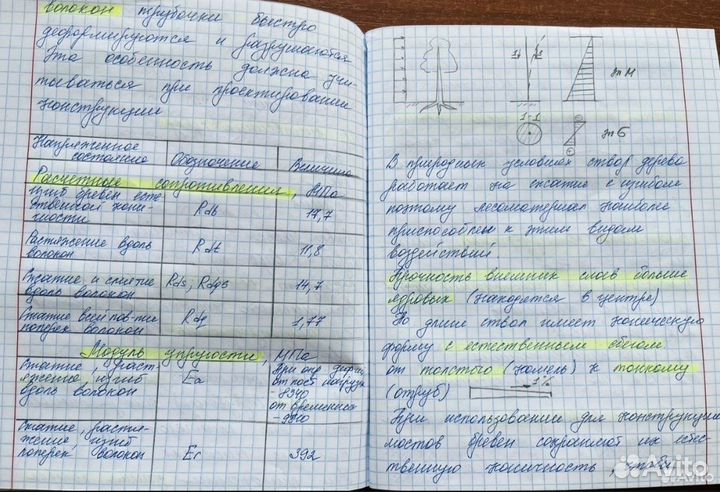 волокон трубочки быстро
деформируются и разрушаются
Эта особенность должна учи-
тываться при проектировании
конструкции
Напряженное состояние
Обозначение
Величина
Расчетные сопротивления, МПа
изгиб бревен есте-
ственной кони-
чности
Rdb
17,7
Растяжение вдоль
волокон
Rdt
11,8
Сжатие и смятие
вдоль волокон
Rds, Rdqs
14,7
Сжатие всей пов-тью
поперек волокон
Rdq
1,77
Модуль упругости, МПа
Сжатие, раст-
яжение, изгиб
вдоль волокон
Ea
При опр. деформ
от пост. нагрузк
- 8340
от временных
- 9810
Сжатие, растя-
жение, изгиб
поперек волокон
Er
392
эп М
1-1
эп б
В природных условиях ствол дерева
работает на сжатие с изгибом
поэтому лесоматериал наиболее
приспособлен к этим видам
воздействий
Прочность внешних слоев больше
ядровых (находятся в центре)
По длине ствол имеет коническую
форму с естественным сбегом
от толстого (комель) к тонкому
(отруб)
1%
При использование для конструкции
мостов бревен сохраняют их есте-
ственную коничность,
Avito